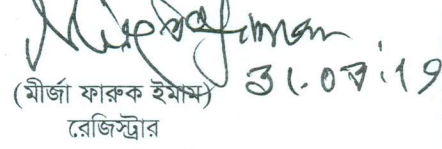 31.07.19
(মীর্জা ফারুক ইমাম)
রেজিস্ট্রার